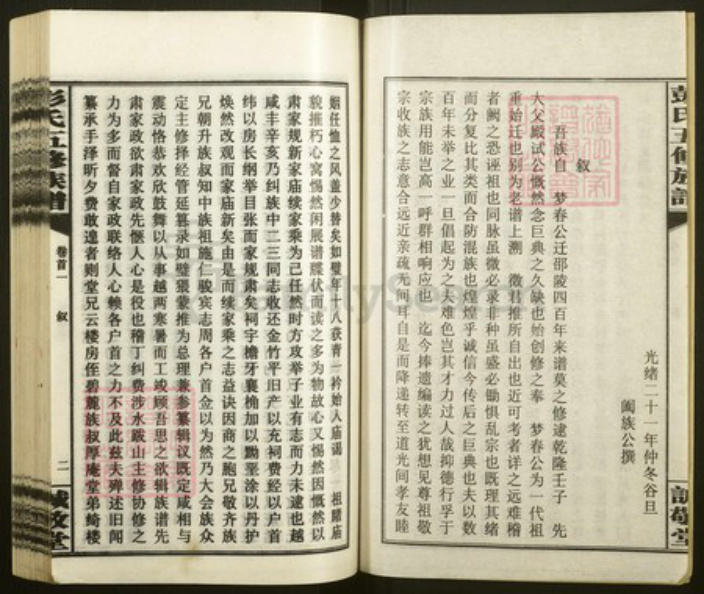 彭氏五修族譜
誠敬堂
光绪二十一年仲冬谷旦
阖族公撰
叙
吾族自 梦春公迁邵陵四百年来谱莫之修逮乾隆壬子 先
大父殿试公慨然念巨典之久缺也始创修之奉 梦春公为一代祖
重始迁也别为老谱上溯 徵君推所自出也近可考者详之远难稽
者阙之恐诬祖也同脉虽微必录非种虽盛必锄惧乱宗也既理其绪
而分复比其类而合防混族也煌煌乎诚信今传后之巨典也夫以数
百年未举之业一旦倡起为之夫难色岂其才力过人哉抑德行孚于
宗族用能岂高一呼群相响应也 迄今捧遗编读之犹想见尊祖敬
宗收族之志意合远近亲疏无间耳自是而降递转至道光间孝友睦
姻任恤之风盖少替矣如璧年十八获青一衿始入庙谒 祖睹庙
貌摧朽心窝惕然闲展谱牒伏而读之多为物故心又惕然因慨然以
肃家规新家庙续家乘为己任然时方攻举子业有志而力未逮也越
咸丰辛亥乃纠族中二三同志收还金竹平旧产以充祠费经以户首
纬以房长纲举目张而家规肃矣祠宇檐牙襄桷加以黝垩涂以丹护
焕然改观而家庙新矣由是而续家乘之志益诀因商之胞兄敬齐族
兄朝升族叔知中族祖施仁骏宾志周各户首佥以为然乃大会族众
定主修择经管延篡录如璧猥蒙推为总理兼参纂辑议既定咸相与
震动恪恭欢欣鼓舞以从事越两寒暑而工竣顾吾思之欲辑族谱先
肃家政欲肃家政先惬人心是役也稽丁纠费涉水跋山主修协修之
力为多而督自家政联络人心赖各户首之力不及此兹夫殚述旧闻
纂承手泽昕夕费敢遑者则堂兄云楼房侄碧麓族叔厚庵堂弟绮楼
彭氏五修族譜
卷首一
叙
二
誠敬堂